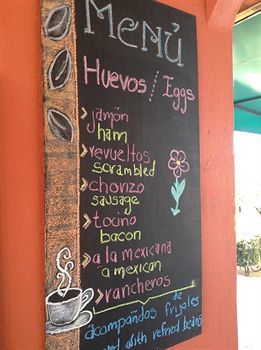 Menú
Huevos / Eggs
jamón
ham
revueltos
scrambled
chorizo
sausage
tocino
bacon
a la mexicana
a mexican
rancheros
acompañdos de frijoles
with refined beans